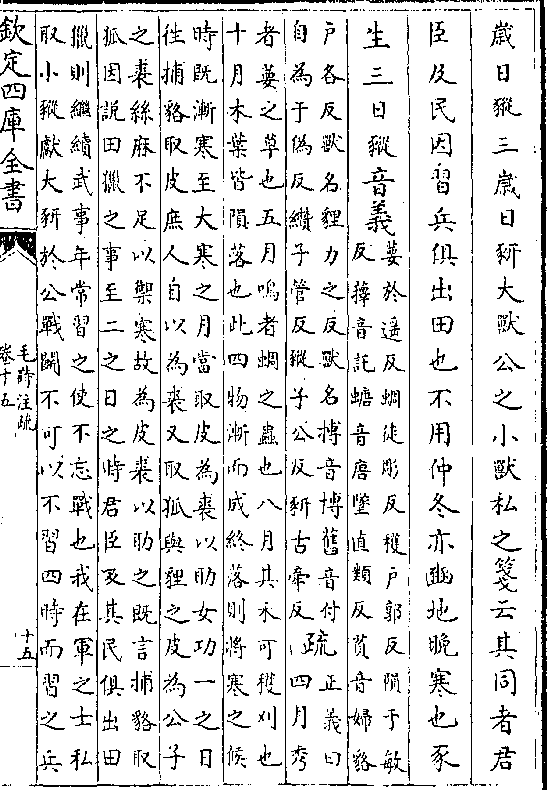 歳曰豵三歳曰豜大獸公之小獸私之箋云其同者君
臣及民因習兵俱出田也不用仲冬亦豳地晩寒也豕
生三曰豵音義
葽於遥反蜩徒彫反穫户郭反隕于敏
反蘀音託蟾音唐墜直類反萯音婦貉
户各反獸名貍力之反獸名搏音博舊音付
自為于偽反纘子管反豵子公反豜古牽反
疏
正義曰
四月秀
者葽之草也五月鳴者蜩之蟲也八月其禾可穫刈也
十月木葉皆隕落也此四物漸而成終落則將寒之候
時既漸寒至大寒之月當取皮為裘以助女功一之日
往捕貉取皮庶人自以為裘又取狐與貍之皮為公子
之裘絲麻不足以禦寒故為皮裘以助之既言捕貉取
狐因説田獵之事至二之日之時君臣及其民俱出田
獵則繼續武事年常習之使不忘戰也我在軍之士私
取小豵獻大豜於公戰鬭不可以不習四時而習之兵
欽定四庫全書
毛詩注疏
卷十五
十五